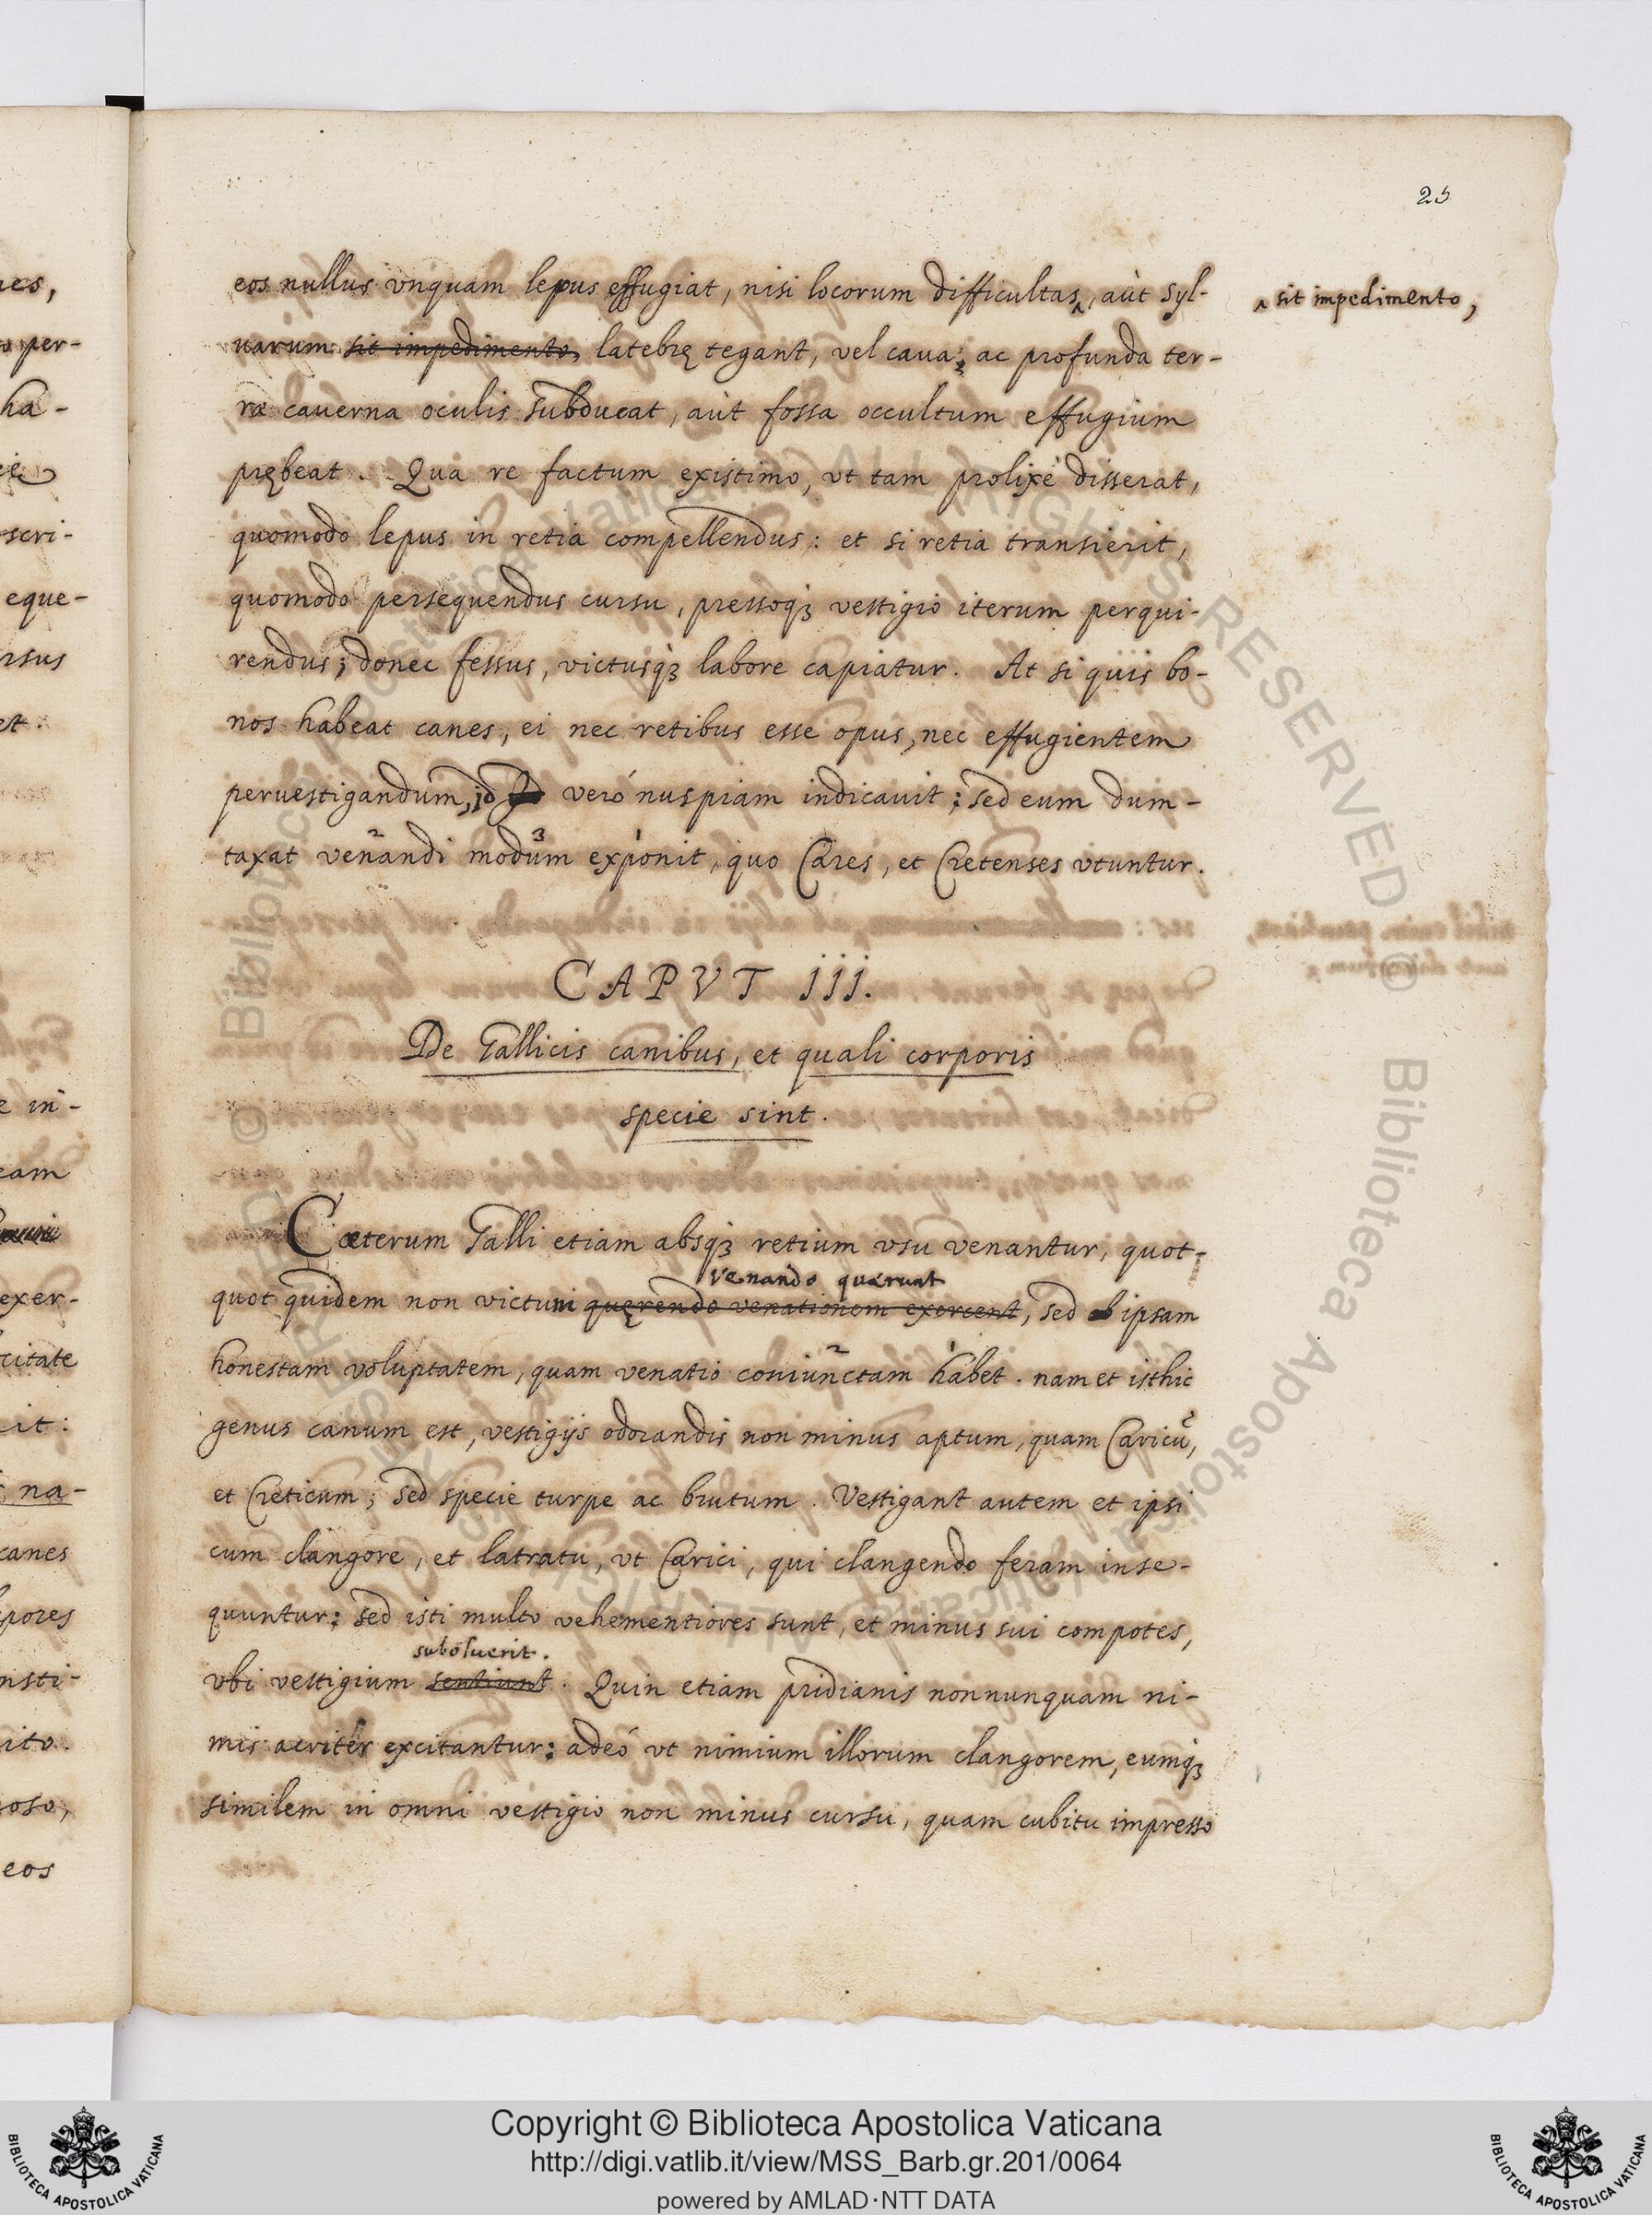 25
eos nullus vnquam lepus effugiat, nisi locorum difficultas, aut syl-
^ sit impedimento,
uarum sit impedimento, latebrę tegant, vel caua, ac profunda ter-
ræ cauerna oculis subducat, aut fossa occultum effugium
prębeat. Qua re factum existimo, vt tam prolixè disserat,
quomodo lepus in retia compellendus: et si retia transierit,
quomodo persequendus cursu, pressoq₃ vestigio iterum perqui-
rendus; donec fessus, victusq₃ labore capiatur. At si quis bo-
nos habeat canes, ei nec retibus esse opus, nec effugientem
peruestigandum, id verò nuspiam indicauit: sed eum dum-
taxat venandi modum exponit, quo Cares, et Cretenses vtuntur.
CAPVT III.
De Gallicis canibus, et quali corporis
specie sint.
Cæterum Galli etiam absq₃ retium vsu venantur, quot-
venando quærunt
quot quidem non victum quęrendo venationem exercent, sed ob ipsam
honestam voluptatem, quam venatio coniunctam habet. nam et isthic
genus canum est, vestigijs odorandis non minus aptum, quam Caricũ,
et Creticum; sed specie turpe ac brutum. Vestigant autem et ipsi
cum clangore, et latratu, vt Carici, qui clangendo feram inse-
quuntur: sed isti multo vehementiores sunt, et minus sui compotes,
suboluerit.
vbi vestigium sentiunt. Quin etiam pridianis nonnunquam ni-
mis acriter excitantur: adeò vt nimium illorum clangorem, eumq₃
similem in omni vestigio non minus cursu, quam cubitu impresso
Copyright © Biblioteca Apostolica Vaticana
http://digi.vatlib.it/view/MSS_Barb.gr.201/0064
powered by AMLAD·NTT DATA
BIBLIOTECA APOSTOLICA VATICANA
BIBLIOTECA APOSTOLICA VATICANA